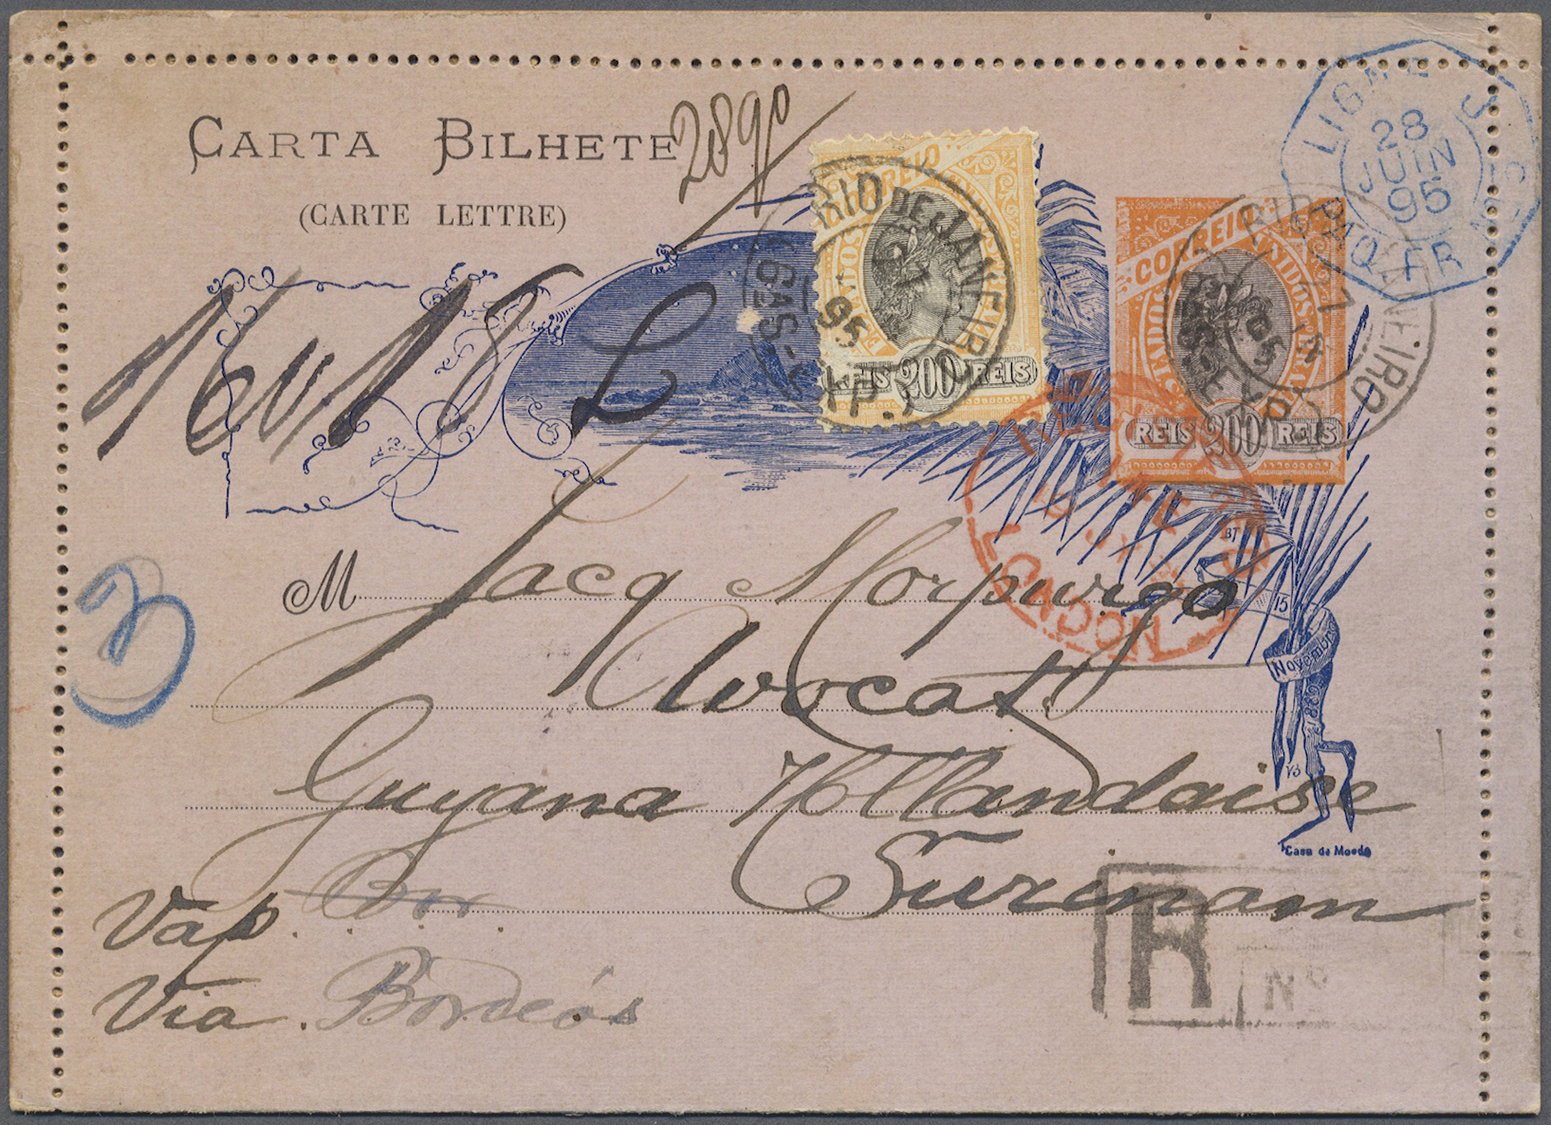 CARTA BILHETE
(CARTE LETTRE)
289
16 v 18 L
RIO DE JANEIRO
95
CORREIO
REIS 200 REIS
CORREIO
ESTADOS UNIDOS
REIS 200 REIS
LIGNE J
28
JUIN
95
PAQ FR
LONDON
3
M Jacq Morpurgo
Avocat
Guyana Hollandaise
Surinam
Vap.
Via. Bordéos
15
Novembro
Casa da Moeda
R
Nº